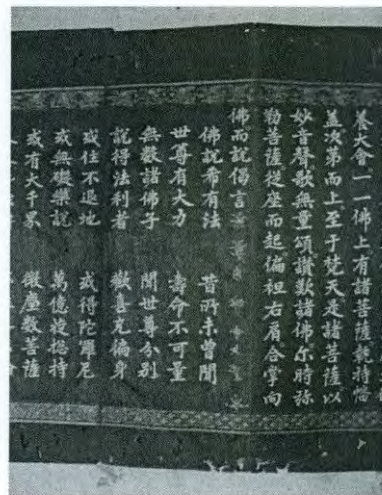 養大會一一佛上有諸菩薩執持幡
蓋次第而上至于梵天是諸菩薩以
妙音聲歌無量頌讚歎諸佛尒時弥
勒菩薩從座而起偏袒右肩合掌向
佛而說偈言
佛說希有法 昔所未曾聞
世尊有大力 壽命不可量
無數諸佛子 聞世尊分別
說得法利者 歡喜充徧身
或住不退地 或得陀羅尼
或無礙樂說 萬億旋揔持
或有大千界 微塵數菩薩